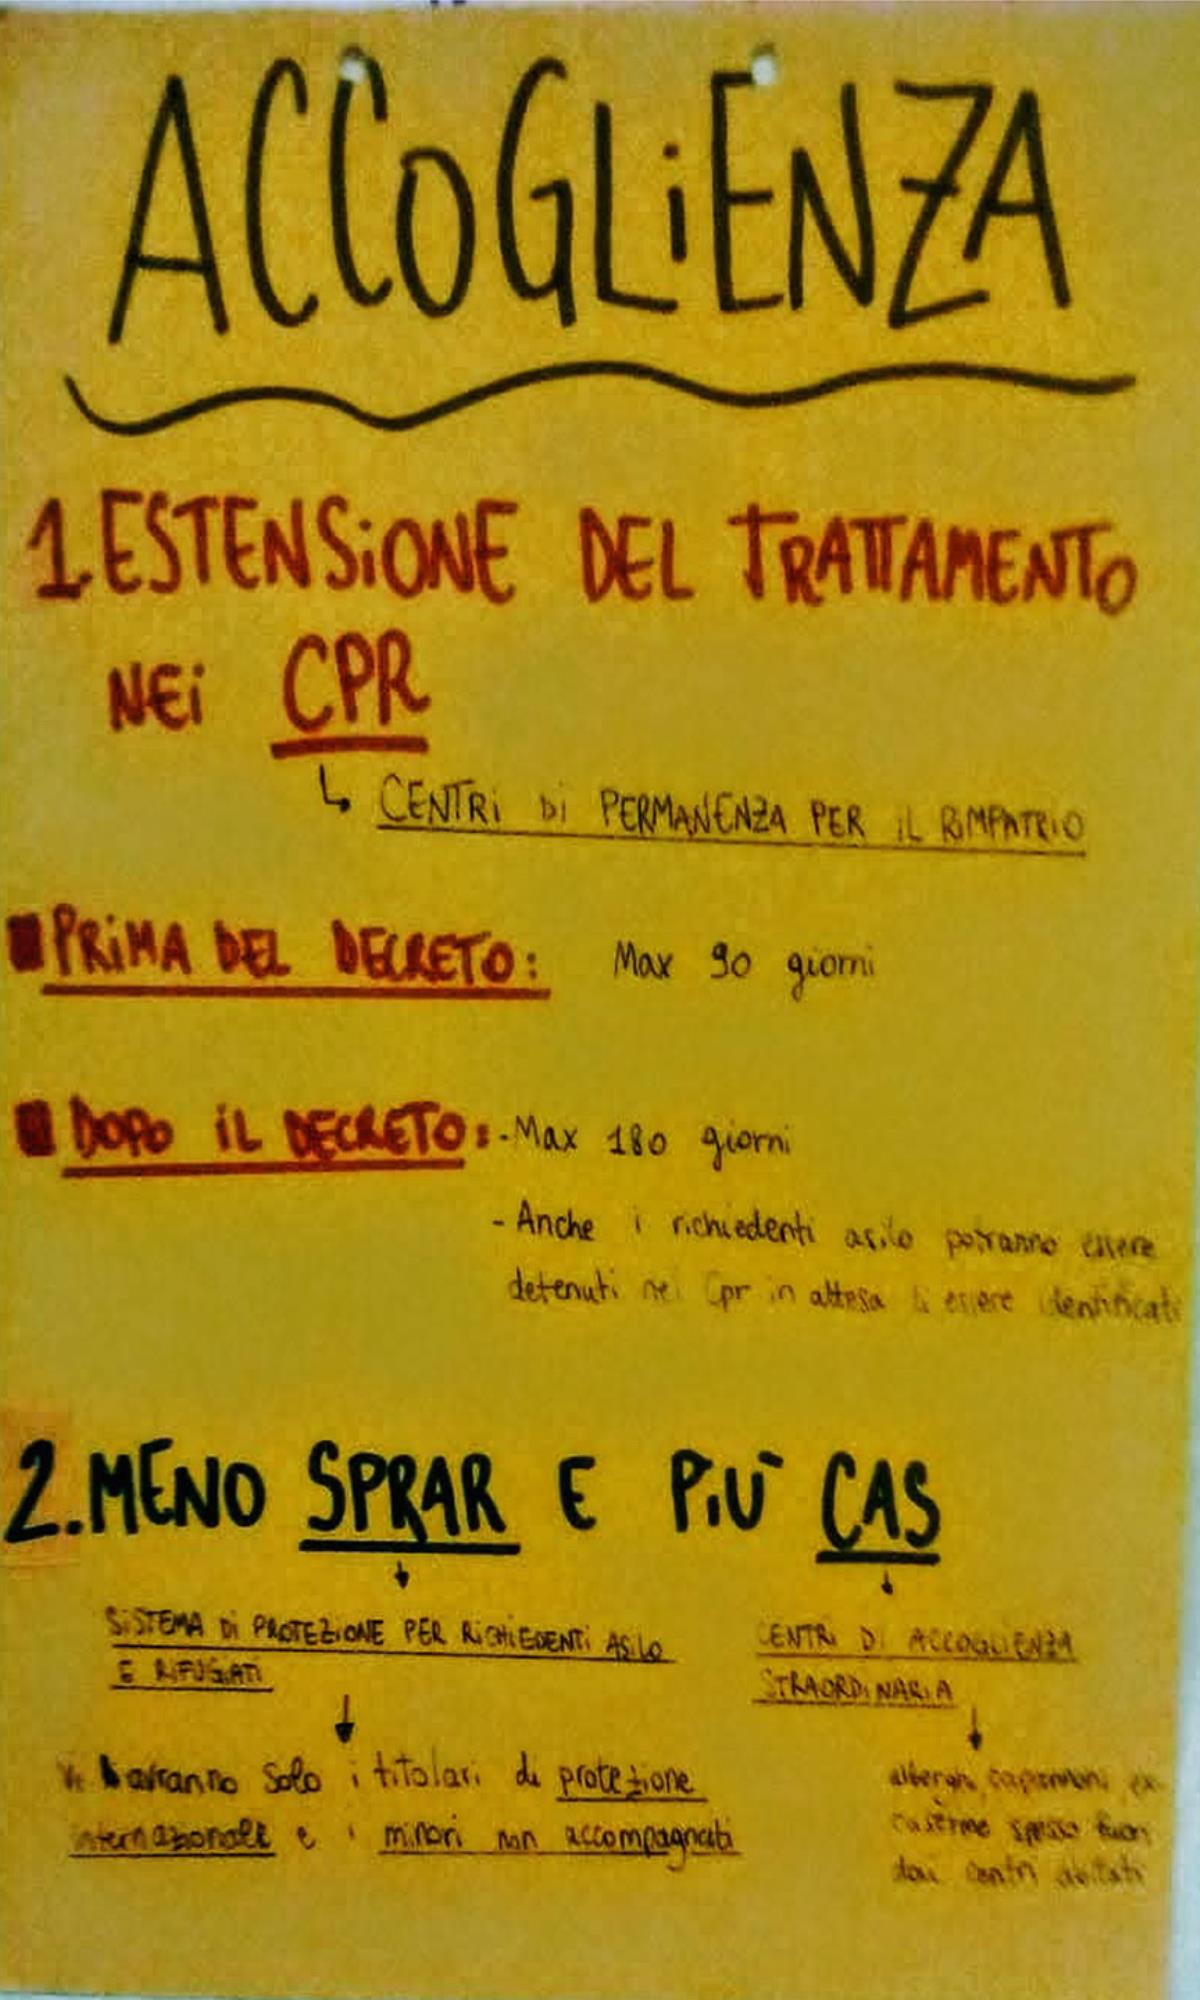 ACCOGLIENZA
1. ESTENSIONE DEL TRATTAMENTO
NEI CPR
↳ CENTRI DI PERMANENZA PER IL RIMPATRIO
PRIMA DEL DECRETO: Max 90 giorni
DOPO IL DECRETO: - Max 180 giorni
- Anche i richiedenti asilo potranno essere
detenuti nei Cpr in attesa di essere identificati
2. MENO SPRAR E PIÙ CAS
SISTEMA DI PROTEZIONE PER RICHIEDENTI ASILO
E RIFUGIATI
CENTRI DI ACCOGLIENZA
STRAORDINARIA
solo i titolari di protezione
internazionale e i minori non accompagnati
alberghi, capannoni, ex
caserme spesso fuori
dai centri abitati